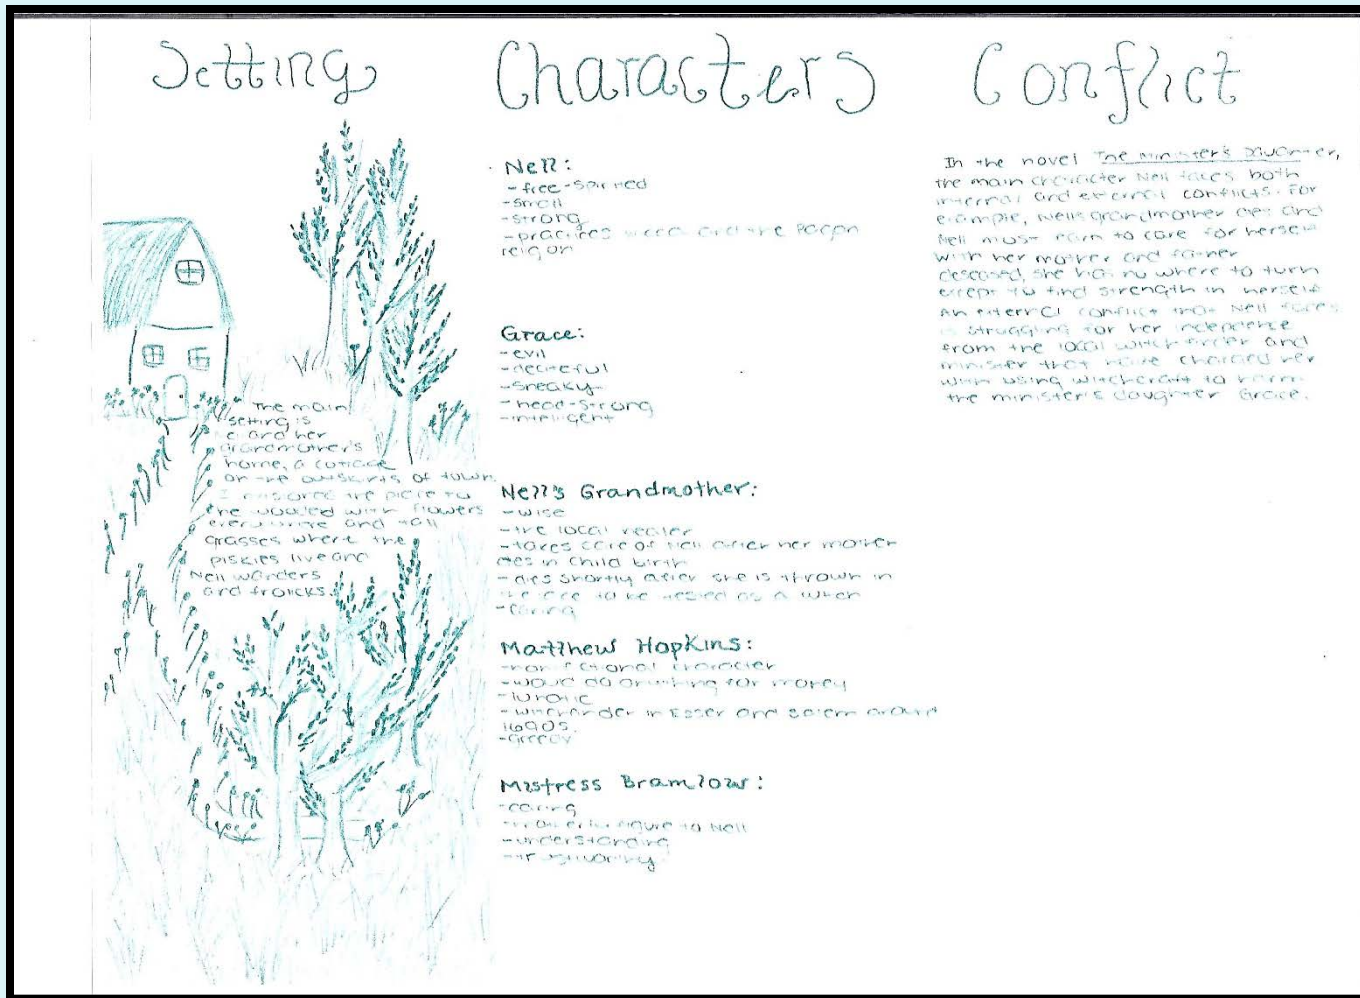 Setting
The main
setting is
and her
grandmother's
home, a cottage
on the outskirts of town.
I the place to
the wooded with flowers
everywhere and tall
grasses where the
piskies live and
Nell wanders
and frolicks.
Characters
Nell:
-free-spirited
-small
-strong
-practices and the pagan
religon
Grace:
-evil
-deceitful
-sneaky
-head-strong
-intelligent
Nell's Grandmother:
-wise
-the local healer
-takes care of Nell after her mother
dies in child birth
-dies shortly after she is thrown in
to be tested as a witch
-caring
Matthew Hopkins:
-non fictional character
-would do anything for money
-lunatic
-witchfinder in Essex and Salem around
1690s.
-greedy
Mistress Bramlow:
-caring
-motherly figure to Nell
-understanding
-trustworthy
Conflict
In the novel The Minister's Daughter,
the main character Nell faces both
internal and external conflicts. For
example, Nells grandmother dies and
Nell must learn to care for herself
with her mother and father
deseased, she has no where to turn
except to find strength in herself.
An external conflict that Nell faces
is struggling for her
from the local witch finder and
minister that have charged her
with using witchcraft to harm
the minister's daughter Grace.